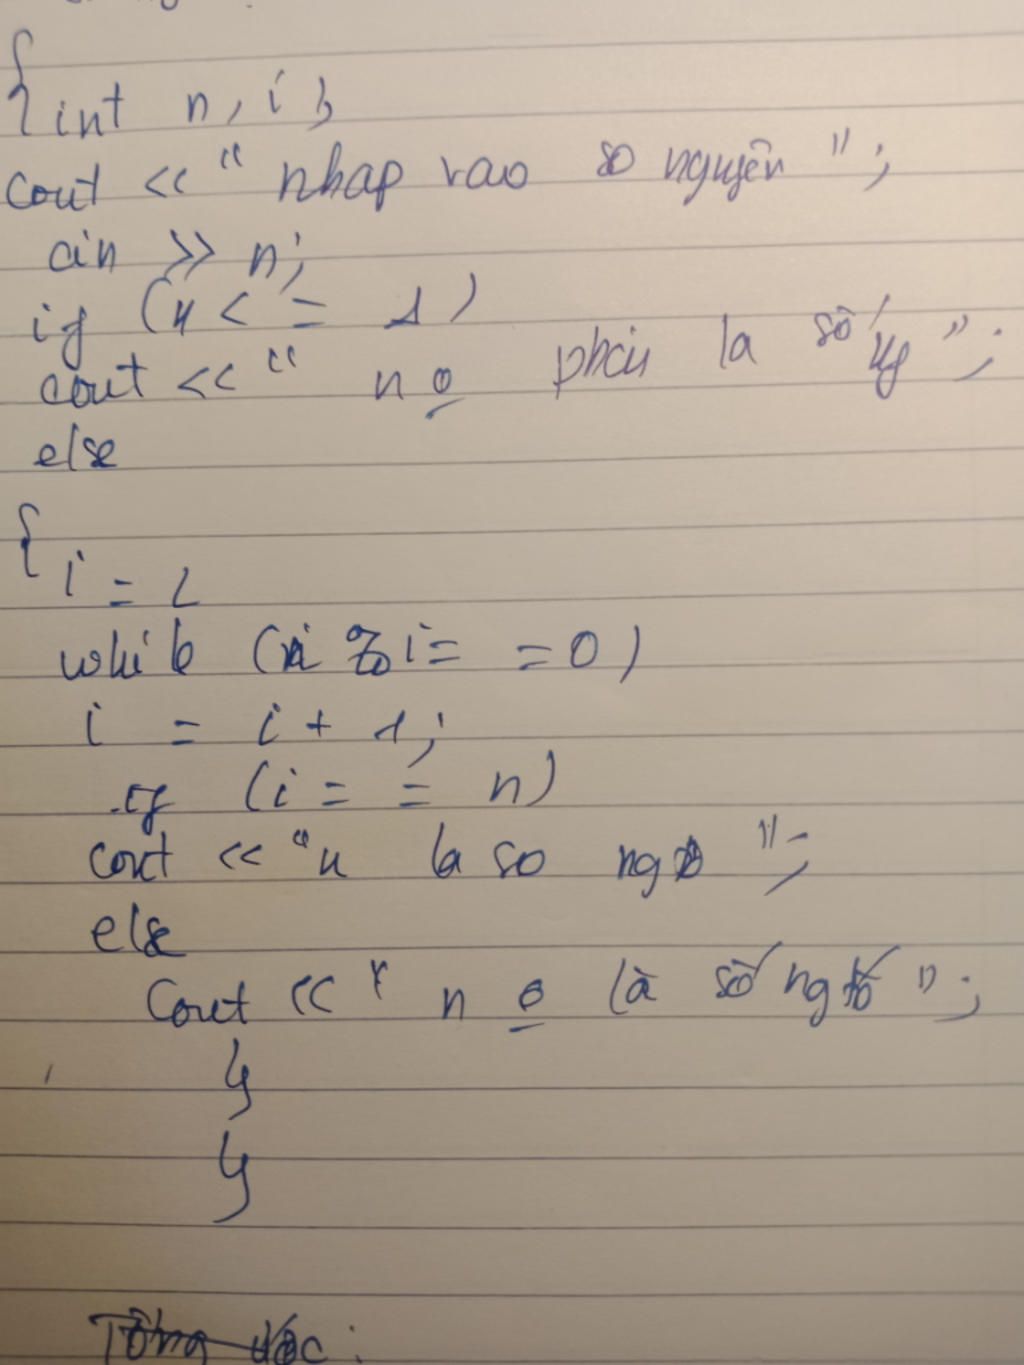 { int n, i ;
cout << " nhap vao so nguyên ";
cin >> n;
if (n < = 1)
cout << " n o phải la số ";
else
{ i = 2
while (n % i = = 0)
i = i + 1;
if (i = = n)
cout << "n la so ";
else
Cout << " n o là số ng tố ";
}
}